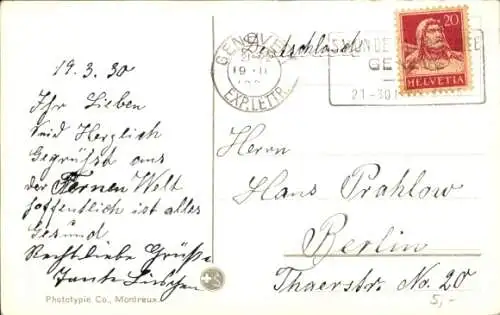 19.3.30
Ihr Lieben
Seid Herzlich
Gegrüßt aus
der Fernen Welt
hoffentlich ist alles
Gesund
Recht liebe Grüße
Tante Lieschen
Phototypie Co., Montreux
GENÈVE
EXP. LETTR.
Deutschland
GENÈVE
21-30
20
HELVETIA
Herrn
Hans Prahlow
Berlin
Thaerstr. No. 20
5,-